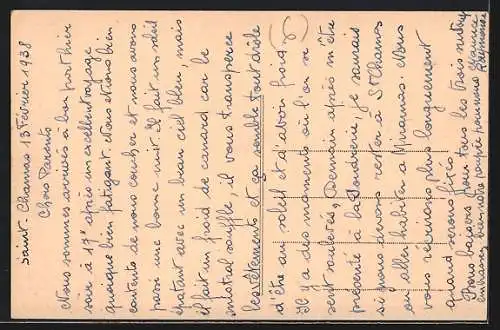 Saint-Chamas 13 Février 1938
Chers Parents
Nous sommes arrivés à bon port hier
soir à 17h après un excellent voyage
quoique bien fatigant. Nous étions bien
contents de nous coucher et nous avons
passé une bonne nuit. Il fait un soleil
épatant avec un beau ciel bleu mais
il fait un froid de canard car le
mistral souffle, il vous transperce
les vêtements et ça semble tout drôle
d'être au soleil et d'avoir froid
Il y a des moments où l'on se
sent soulevés, Demain après m'être
présenté à la Poudrerie, je saurais
si nous devons rester à St Chamas
ou aller habiter à Miramas. Nous
vous réécrirons plus longuement
quand serons fixés
Bons baisers pour tous les trois
embrassez bien notre poupée pour nous
Raymonde